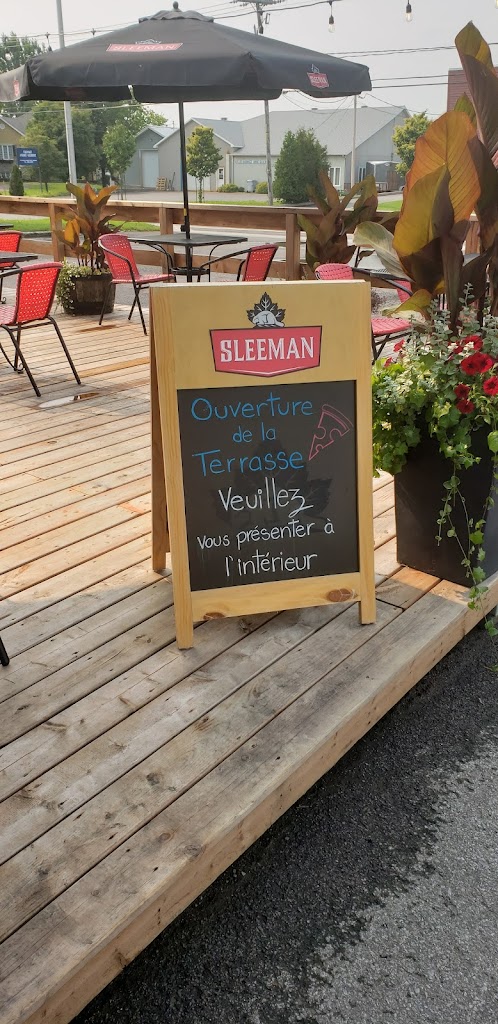 SLEEMAN
SLEEMAN
Ouverture
de la
Terrasse
Veuillez
vous présenter à
l'intérieur